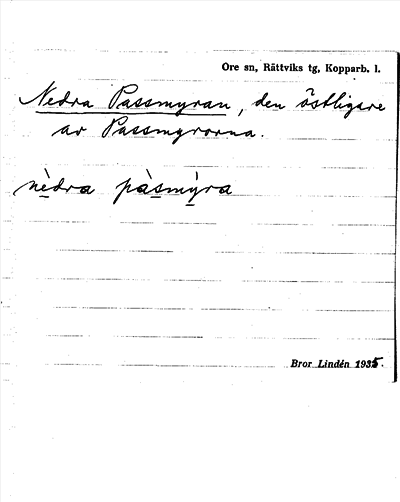 Ore sn, Rättviks tg, Kopparb. l.
Nedra Passmyran, den östligare
av Passmyrorna.
nèdra pàsmỳra
Bror Lindén 1935.